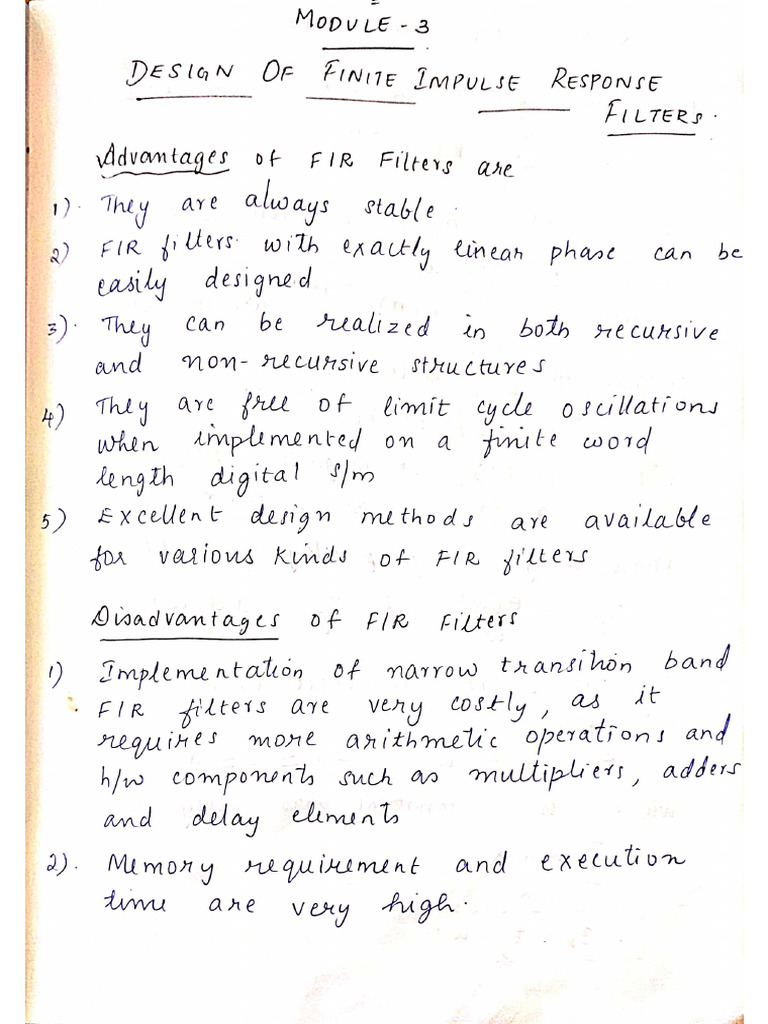 MODULE - 3
DESIGN OF FINITE IMPULSE RESPONSE
FILTERS.
Advantages of FIR Filters are
1). They are always stable.
2) FIR filters with exactly linear phase can be
easily designed
3). They can be realized in both recursive
and non-recursive structures
4) They are free of limit cycle oscillations
when implemented on a finite word
length digital s/m
5) Excellent design methods are available
for various kinds of FIR filters
Disadvantages of FIR Filters
1) Implementation of narrow transition band
FIR filters are very costly, as it
requires more arithmetic operations and
h/w components such as multipliers, adders
and delay elements
2). Memory requirement and execution
time are very high.